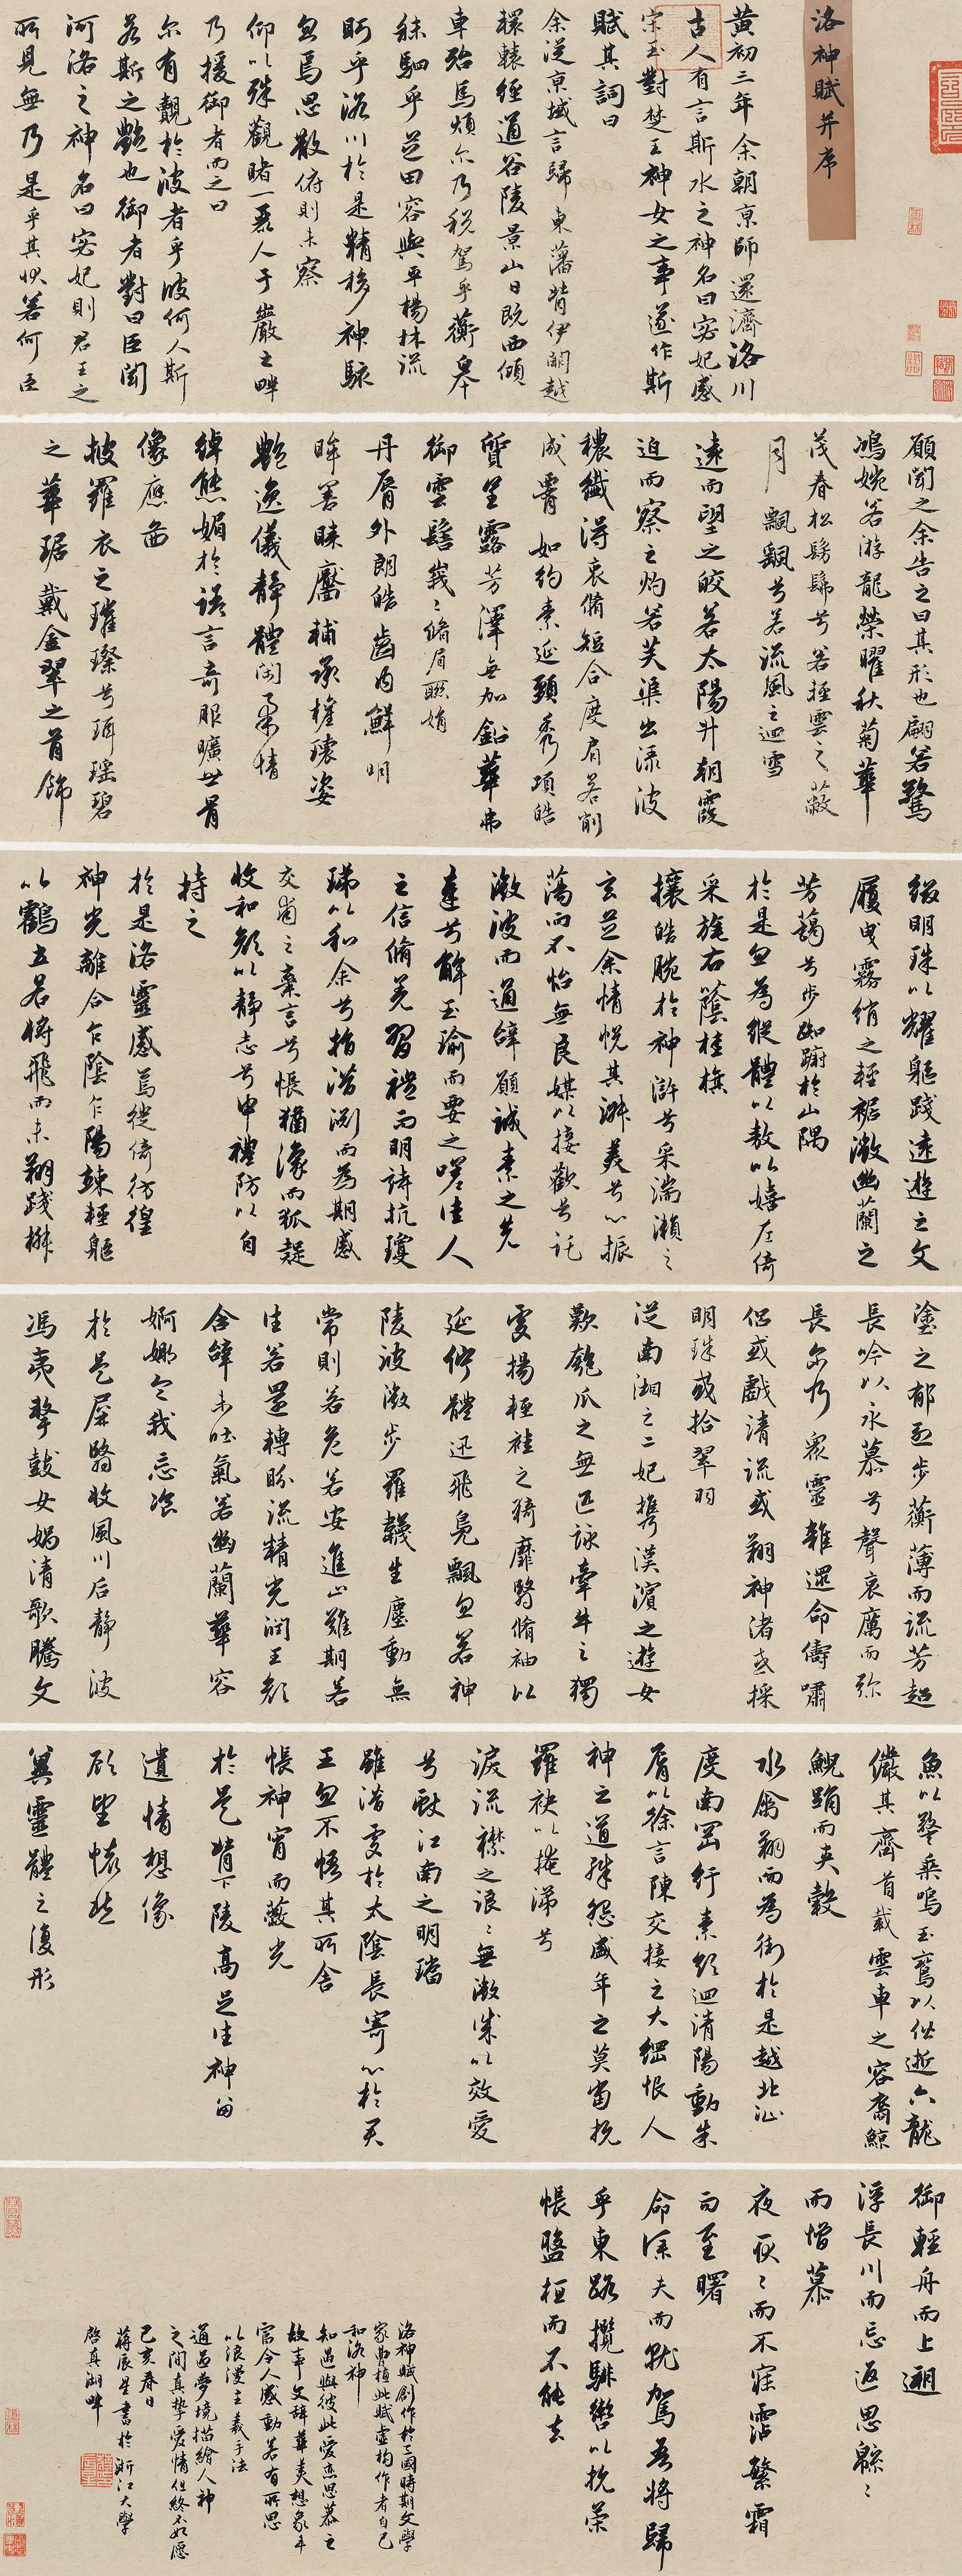 洛神賦并序
黃初三年余朝京師還濟洛川
古人有言斯水之神名曰宓妃感
宋玉對楚王神女之事遂作斯
賦其詞曰
余從京域言歸東藩背伊闕越
轘轅經通谷陵景山日既西傾
車殆馬煩尔乃稅駕乎蘅皋
秣駟乎芝田容與乎楊林流
眄乎洛川於是精移神駭
忽焉思散俯則未察
仰以殊觀睹一麗人于巖之畔
乃援御者而之曰
尔有覿於波者乎波何人斯
若斯之艷也御者對曰臣聞
河洛之神名曰宓妃則君王之
所見無乃是乎其狀若何臣
願聞之余告之曰其形也翩若驚
鴻婉若游龍榮曜秋菊華
茂春松髣髴兮若輕雲之蔽
月飄颻兮若流風之迴雪
遠而望之皎若太陽升朝霞
迫而察之灼若芙渠出淥波
穠纖得衷脩短合度肩若削
成腰如約素延頸秀項皓
質呈露芳澤無加鉛華弗
御雲髻峩〻脩眉聯娟
丹脣外朗皓齒內鮮明
眸善睞靨輔承權瓌姿
艷逸儀靜體閑柔情
綽態媚於語言奇服曠世骨
像應圖
披羅衣之璀璨兮珥瑤碧
之華琚戴金翠之首飾
綴明珠以耀軀踐遠遊之文
履曳霧綃之輕裾微幽蘭之
芳藹兮步踟躕於山隅
於是忽焉縱體以敖以嬉左倚
采旄右蔭桂旗
攘皓腕於神滸兮采湍瀨之
玄芝余情悅其淑美兮心振
蕩而不怡無良媒以接歡兮託
微波而通辭願誠素之先
達兮解玉瑜而要之嗟佳人
之信脩羌習禮而明詩抗瓊
珶以和余兮指潛淵而為期感
交甫之棄言兮悵猶豫而狐疑
收和顏以靜志兮申禮防以自
持之
於是洛靈感焉徙倚彷徨
神光離合乍陰乍陽竦輕軀
以鶴立若將飛而未翔踐椒
塗之郁烈步蘅薄而流芳超
長吟以永慕兮聲哀厲而弥
長尔乃眾靈雜遝命儔嘯
侶或戲清流或翔神渚或採
明珠或拾翠羽
從南湘之二妃攜漢濱之遊女
歎匏瓜之無匹詠牽牛之獨
處揚輕袿之猗靡翳脩袖以
延佇體迅飛鳧飄忽若神
陵波微步羅韈生塵動無
常則若危若安進止難期若
往若還轉盼流精光潤玉顏
含辭未吐氣若幽蘭華容
婀娜令我忘飡
於是屏翳收風川后靜波
馮夷擊鼓女媧清歌騰文
魚以警乘鳴玉鸞以偕逝六龍
儼其齊首載雲車之容裔鯨
鯢踊而夾轂
水禽翔而為衛於是越北沚
度南岡紆素領迴清陽動朱
脣以徐言陳交接之大綱恨人
神之道殊怨盛年之莫當抗
羅袂以掩涕兮
淚流襟之浪〻無微情以效愛
兮獻江南之明璫
雖潛處於太陰長寄心於君
王忽不悟其所舍
悵神宵而蔽光
於是背下陵高足往神留
遺情想像
顧望懷愁
冀靈體之復形
御輕舟而上遡
浮長川而忘返思緜〻
而增慕
夜耿〻而不寐霑繁霜
而至曙
命僕夫而就駕吾將歸
乎東路攬騑轡以抗策
悵盤桓而不能去
洛神賦創作於三國時期文學
家曹植此賦虛構作者自己
和洛神
知遇與彼此愛戀思慕之
故事文辭華美想象丰
富令人感動若有所思
以浪漫主義手法
通過夢境描繪人神
之間真摯愛情但終不如愿
己亥春日
蔣辰星書於浙江大學
啓真湖畔